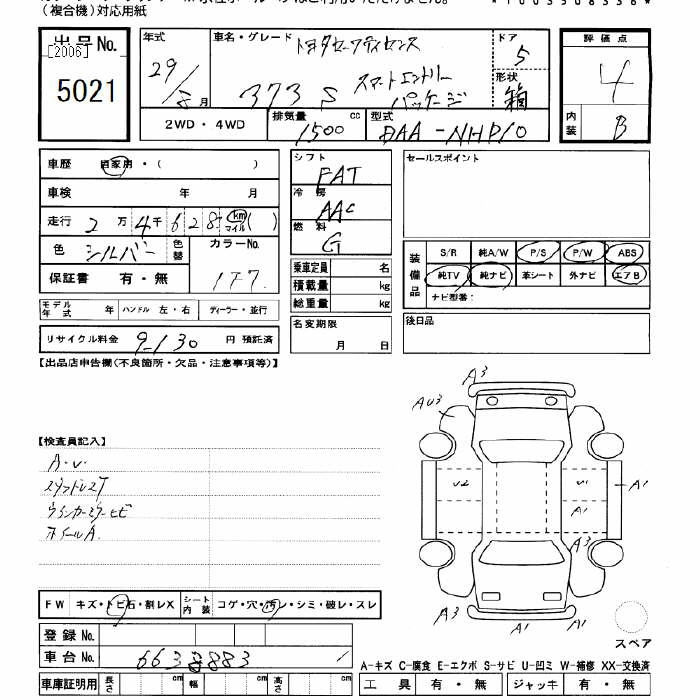 （複合機）対応用紙
出品No.
[2006]
5021
年式
29/8月
車名・グレード
373 S スマートエントリー
パッケージ
ドア
5
形状
箱
評価点
4
内装
B
2WD・4WD
排気量
1500 cc
型式
DAA-NHP10
車歴 自家用・（ ）
車検 年 月
走行 2万4千628 km マイル（ ）
色 シルバー 色替 カラーNo.
保証書 有・無 1F7
モデル年式 年 ハンドル 左・右 ディーラー・並行
リサイクル料金 9,130 円 預託済
シフト
FAT
冷房
AAC
燃料
G
乗車定員 名
積載量 kg
総重量 kg
名変期限
月 日
セールスポイント
装備品
S/R 純A/W P/S P/W ABS
純TV 純ナビ 革シート 外ナビ エアB
ナビ型番：
後日品
【出品店申告欄(不良箇所・欠品・注意事項等)】
【検査員記入】
A・U
ウインカーミラーヒビ
ホイールA.
FW キズ・トビ石・割レX シート内装 コゲ・穴・汚レ・シミ・破レ・スレ
登録No.
車台No. 6638883
車庫証明用 長さ cm 幅 cm 高さ cm
A3
AU3
U2
U1
A1
A1
A3
A3
A1
A1
スペア
A-キズ C-腐食 E-エクボ S-サビ U-凹ミ W-補修 XX-交換済
工具 有・無 ジャッキ 有・無